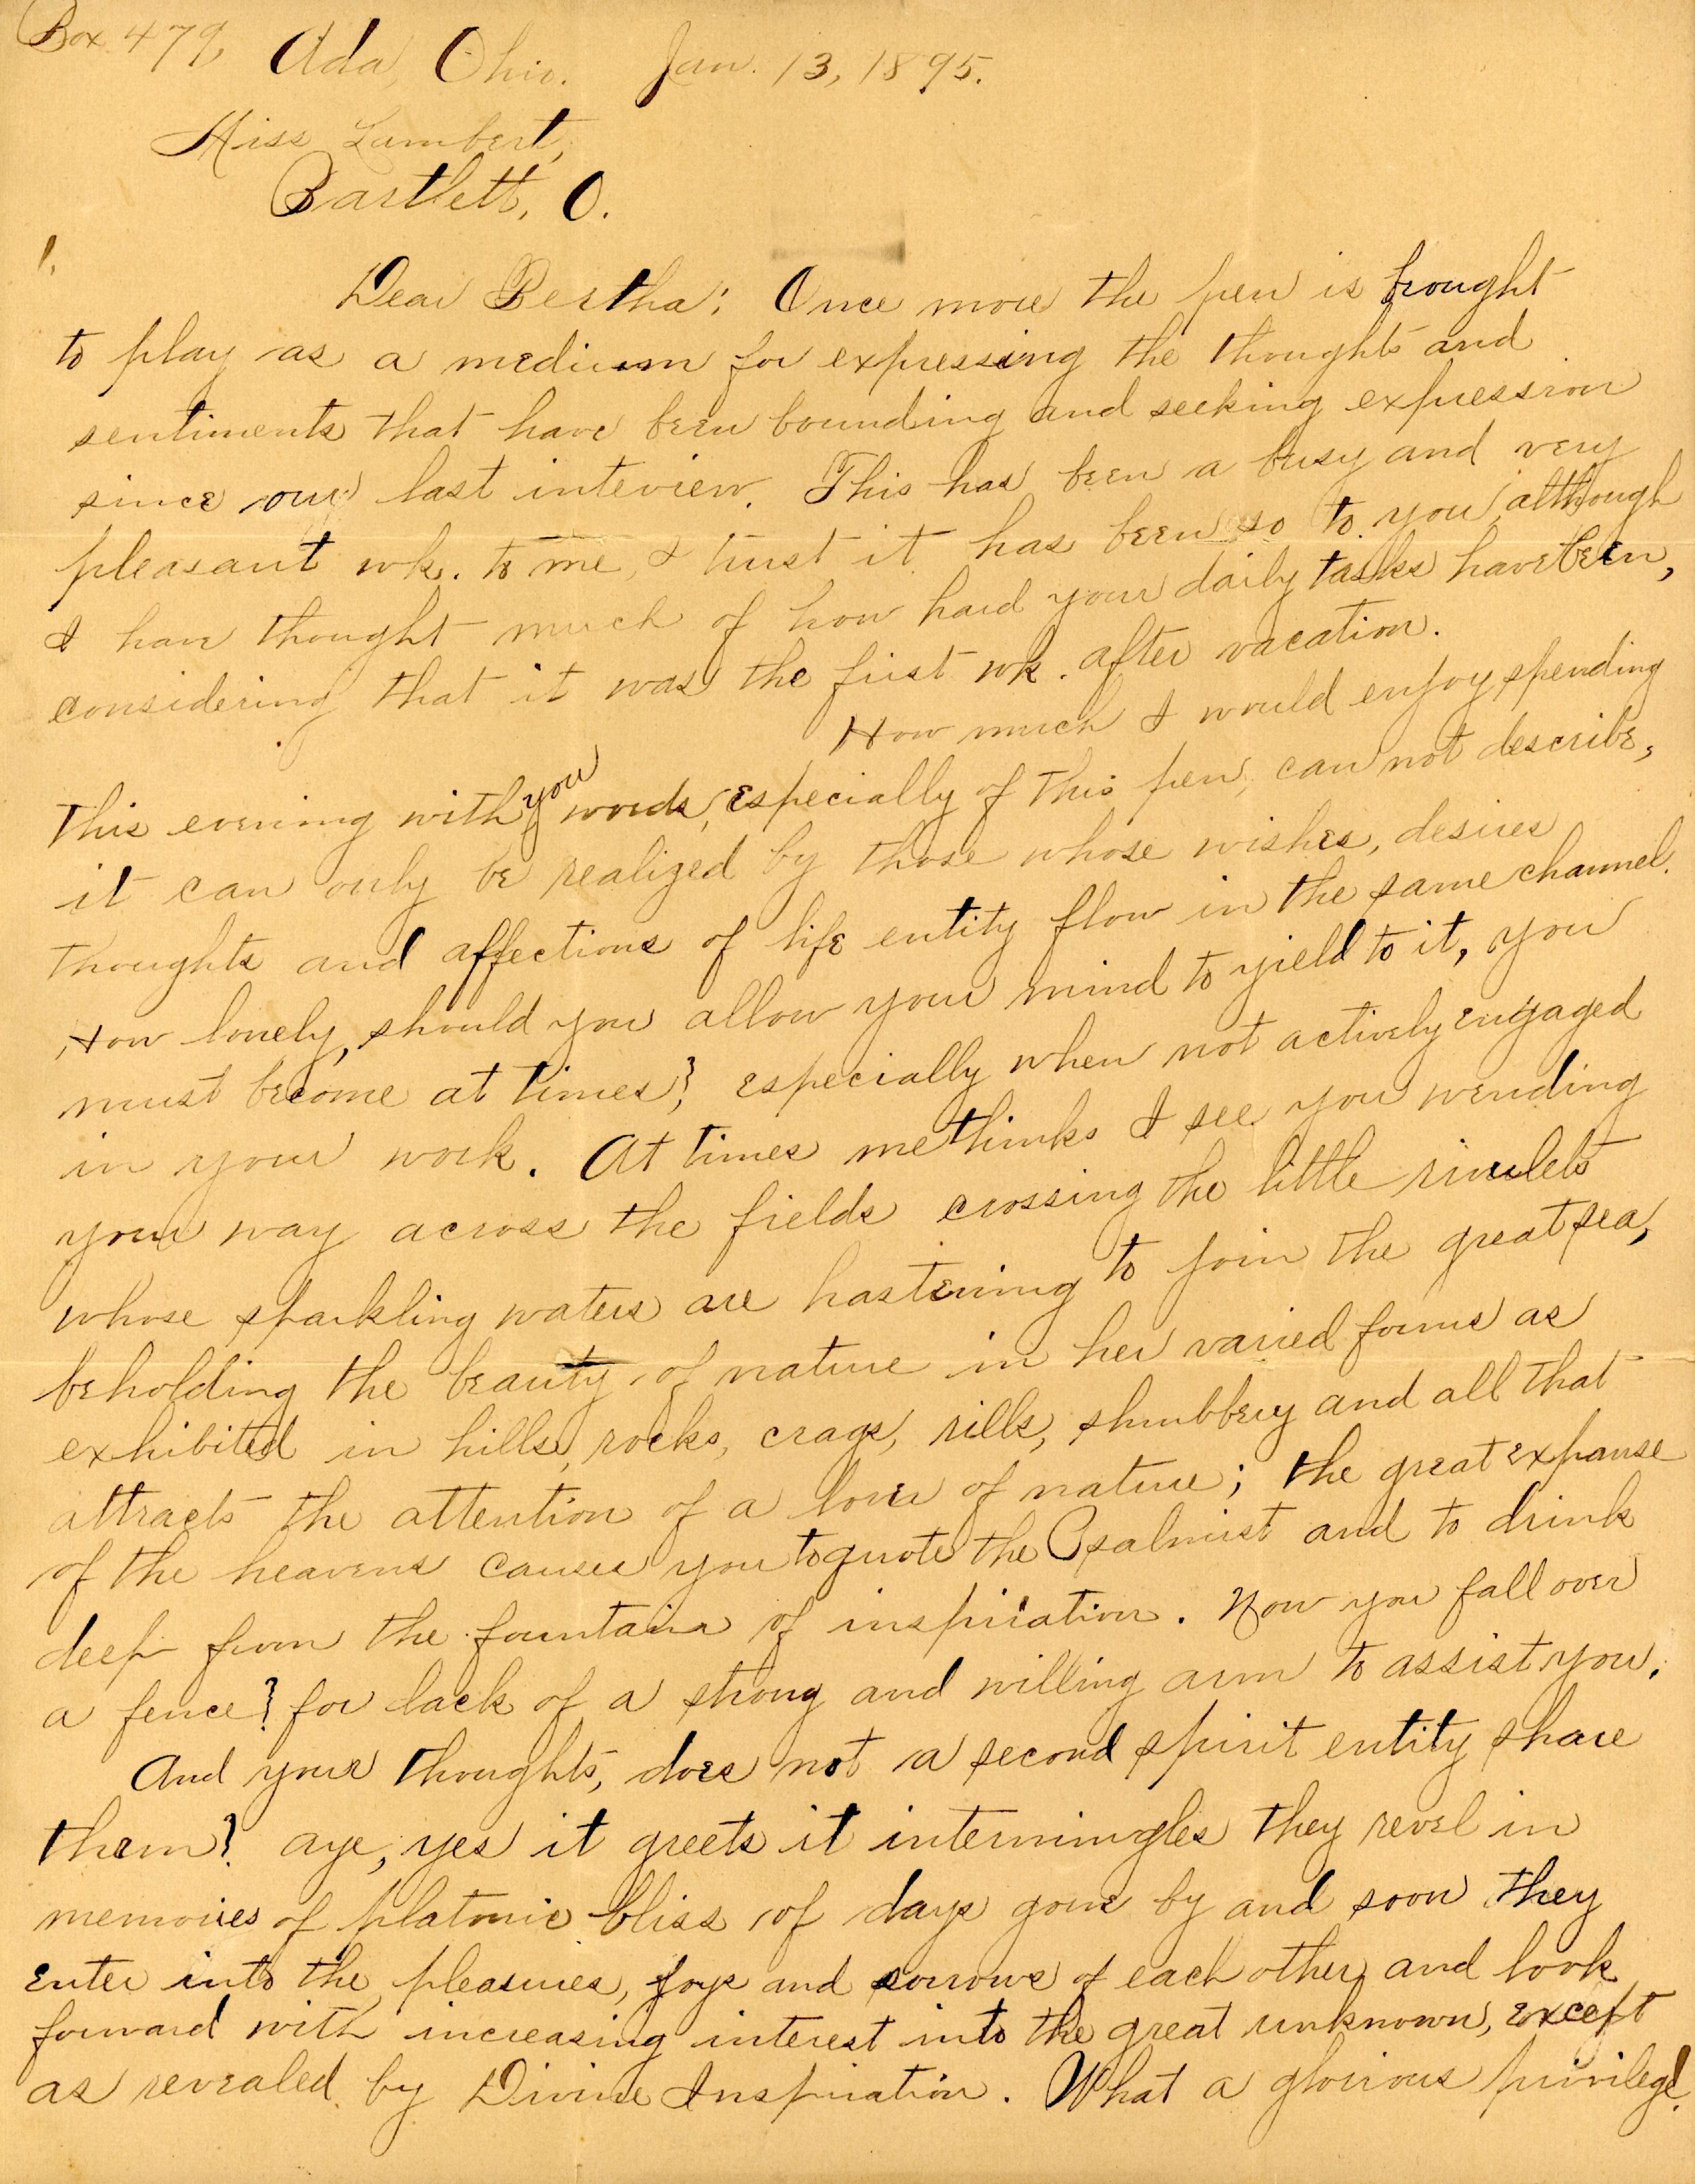 Box 479, Ada, Ohio. Jan. 13, 1895.
Miss Lambert,
Bartlett, O.
1.
Dear Bertha: Once more the pen is brought
to play as a medium for expressing the thoughts and
sentiments that have been bounding and seeking expression
since our last inteview. This has been a busy and very
pleasant wk. to me, I trust it has been so to you, although
I have thought much of how hard your daily tasks have been,
considering that it was the first wk. after vacation.
How much I would enjoy spending
this evening with you words, especially of this pen, can not describe,
it can only be realized by those whose wishes, desires
thoughts and affections of life entity flow in the same channel.
How lonely, should you allow your mind to yield to it, you
must become at times? especially when not actively engaged
in your work. At times methinks I see you wending
your way across the fields crossing the little rivulets
whose sparkling waters are hastening to join the great sea,
beholding the beauty of nature in her varied forms as
exhibited in hills, rocks, crags, rills, shrubbery and all that
attracts the attention of a lover of nature; the great expanse
of the heavens causes you to quote the Psalmist and to drink
deep from the fountain of inspiration. Now you fall over
a fence? for lack of a strong and willing arm to assist you.
And your thoughts, does not a second spirit entity share
them? aye, yes it greets it intermingles they revel in
memories of platonic bliss of days gone by and soon they
enter into the pleasures, joys and sorrows of each other, and look
forward with increasing interest into the great unknown, except
as revealed by Divine Inspiration. What a glorious privilege!